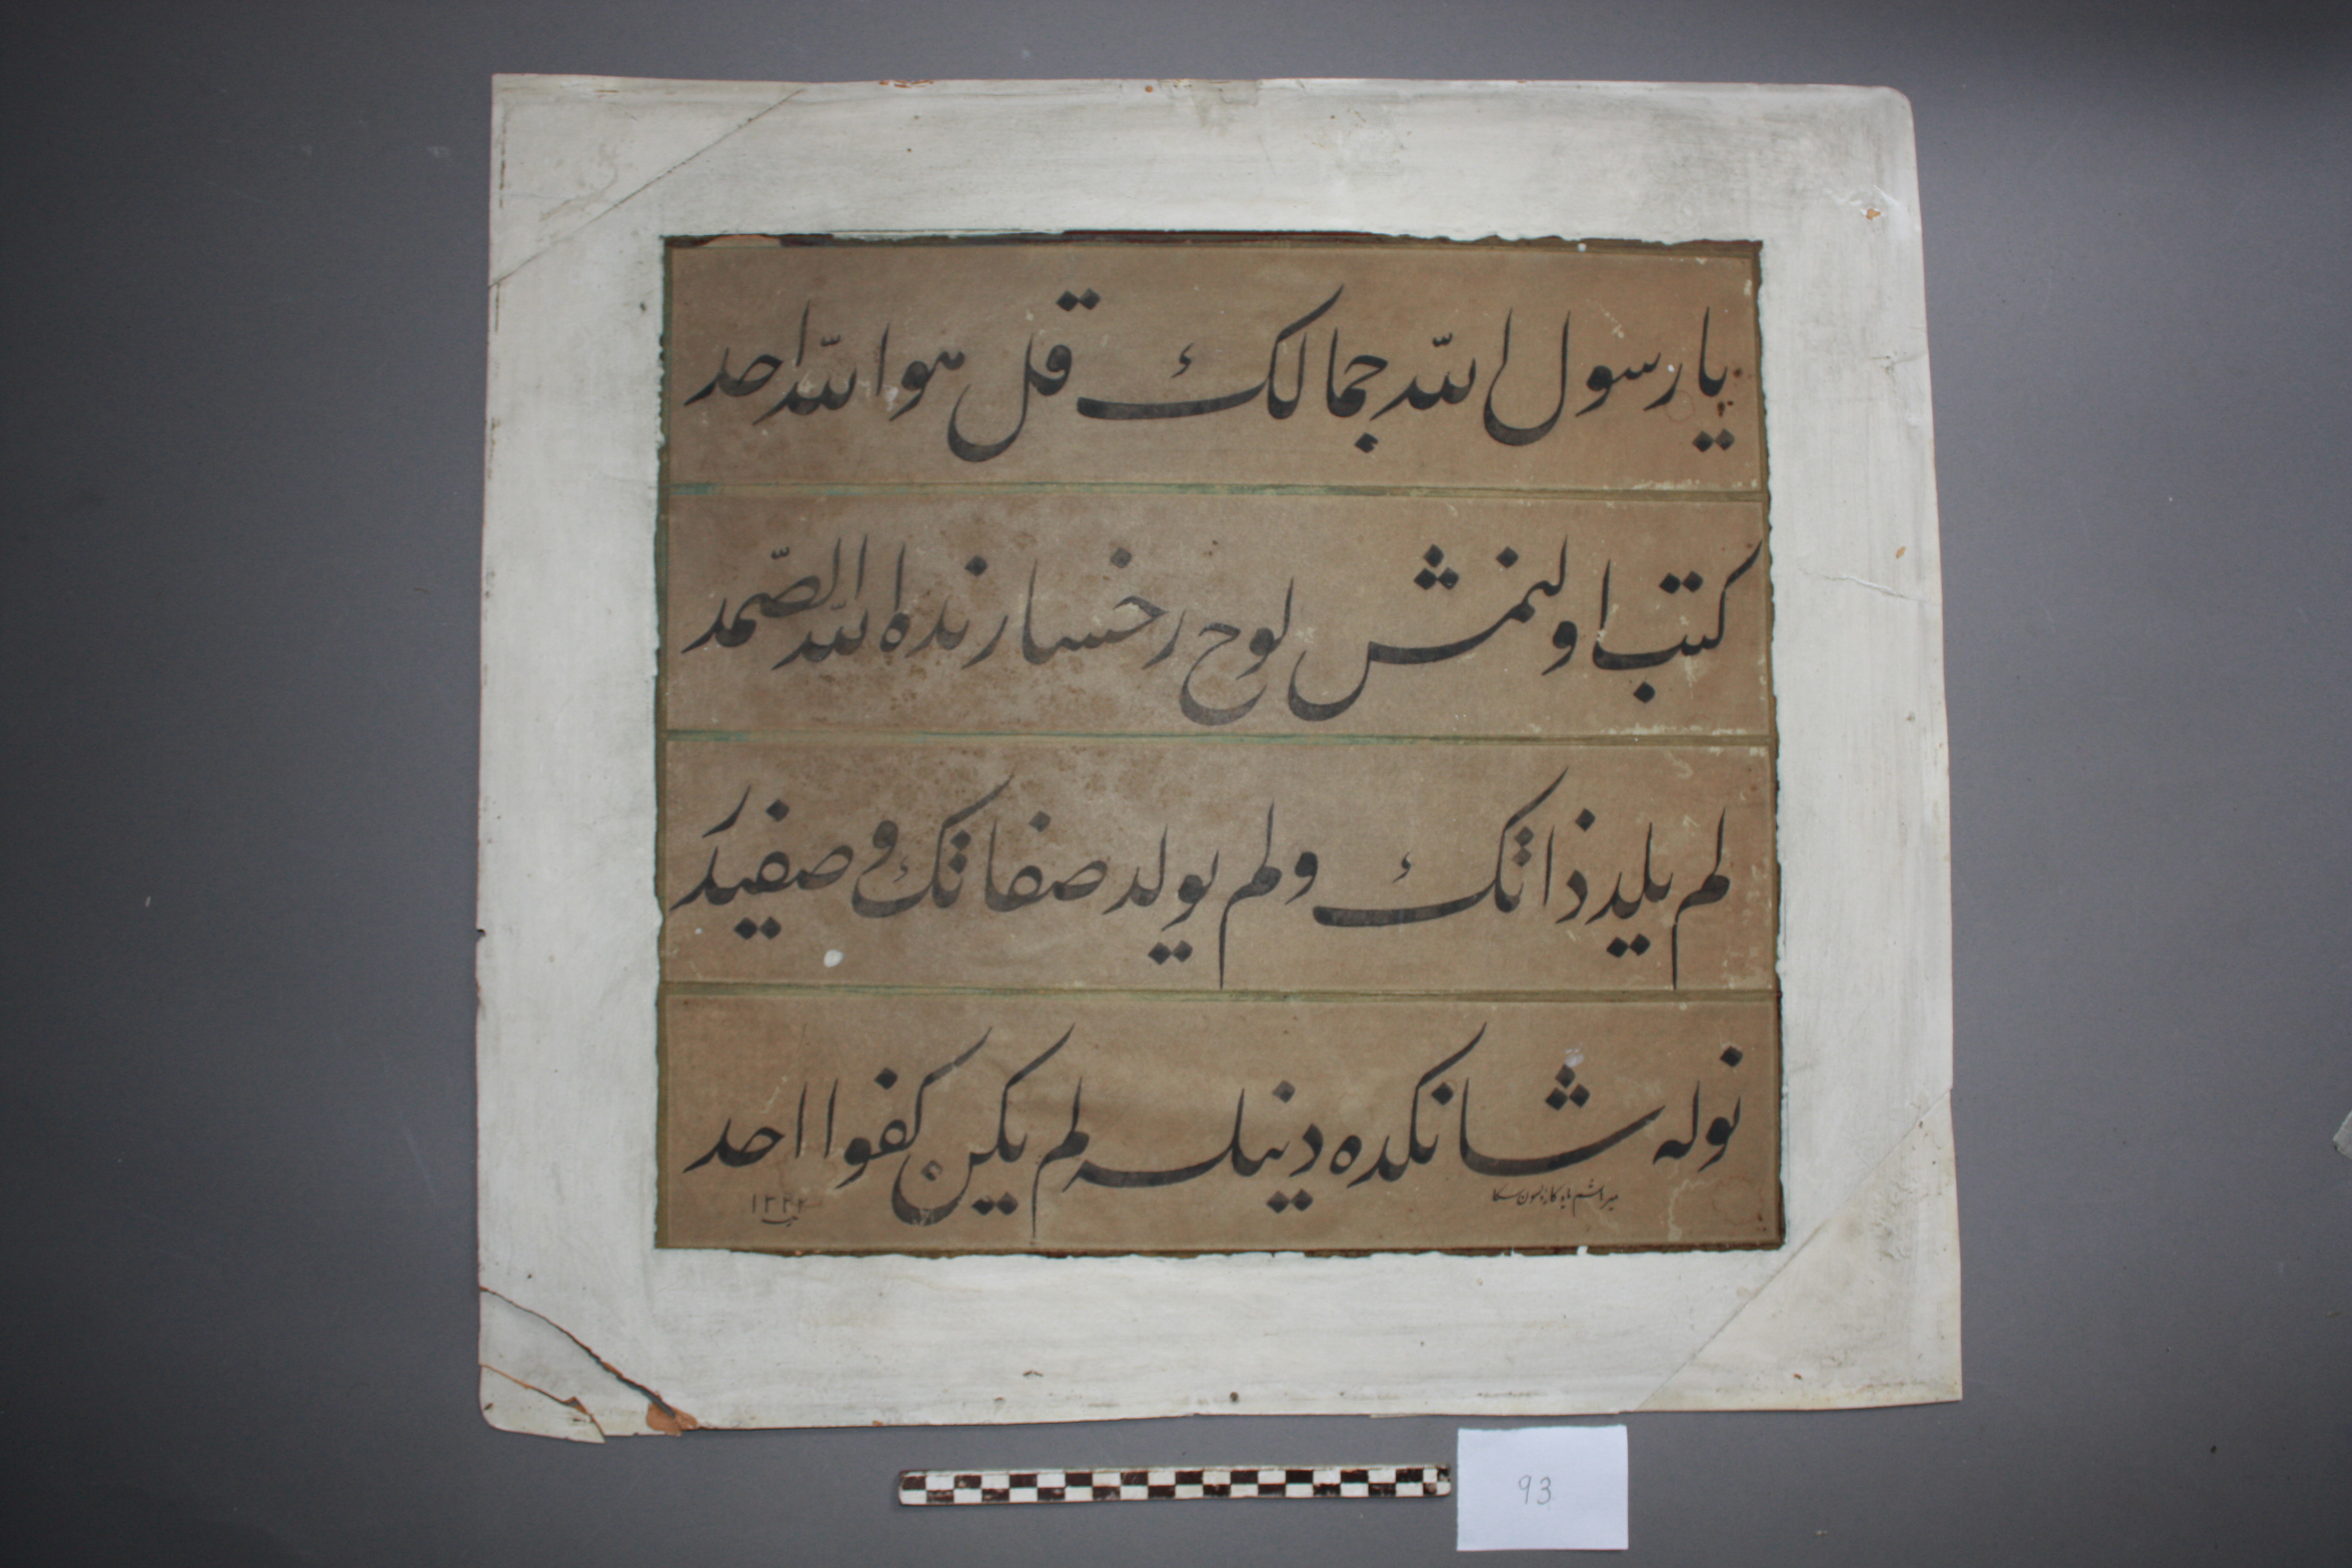 يا رسول الله جمالك قل هو الله احد
كتب اولنمش لوح رخسارنده الله الصّمد
لم يلد ذاتك و لم يولد صفاتك و صفيدر
نوله شانكده دينلسه لم يكن كفوا احد
93